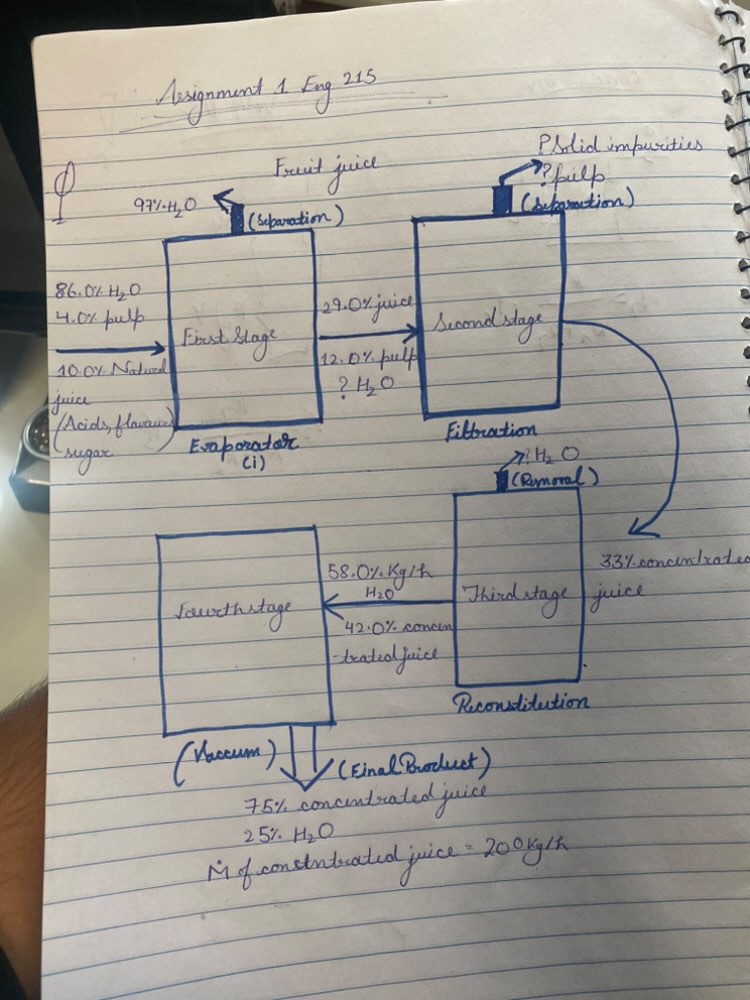 Assignment 1 Eng 215
Fruit juice
97% H₂O
(Separation)
? Solid impurities
? pulp
(Separation)
86.0% H₂O
4.0% pulp
10.0% Natural
juice
(Acids, flavaurs
sugar
First Stage
Evaporator
(i)
29.0% juice
12.0% pulp
? H₂O
Second stage
Filtration
33% concentrated
juice
? H₂O
(Removal)
Third stage
Reconstitution
58.0% Kg/h
H₂O
42.0% concen
-trated juice
Fourth stage
(Vaccum)
(Final Product)
75% concentrated juice
25% H₂O
Ṁ of constntrated juice = 200 Kg/h